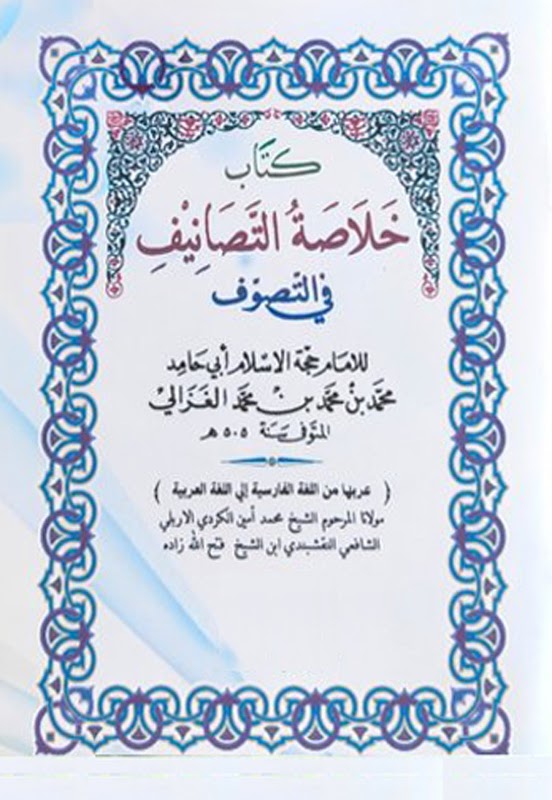 كتاب
خلاصة التصانيف
في التصوف
للامام حجة الاسلام أبي حامد
محمد بن محمد بن محمد الغزالي
المتوفى سنة ٥٠٥ هـ
( عربها من اللغة الفارسية إلى اللغة العربية )
مولانا المرحوم الشيخ محمد أمين الكردي الاربلي
الشافعي النقشبندي ابن الشيخ فتح الله زاده